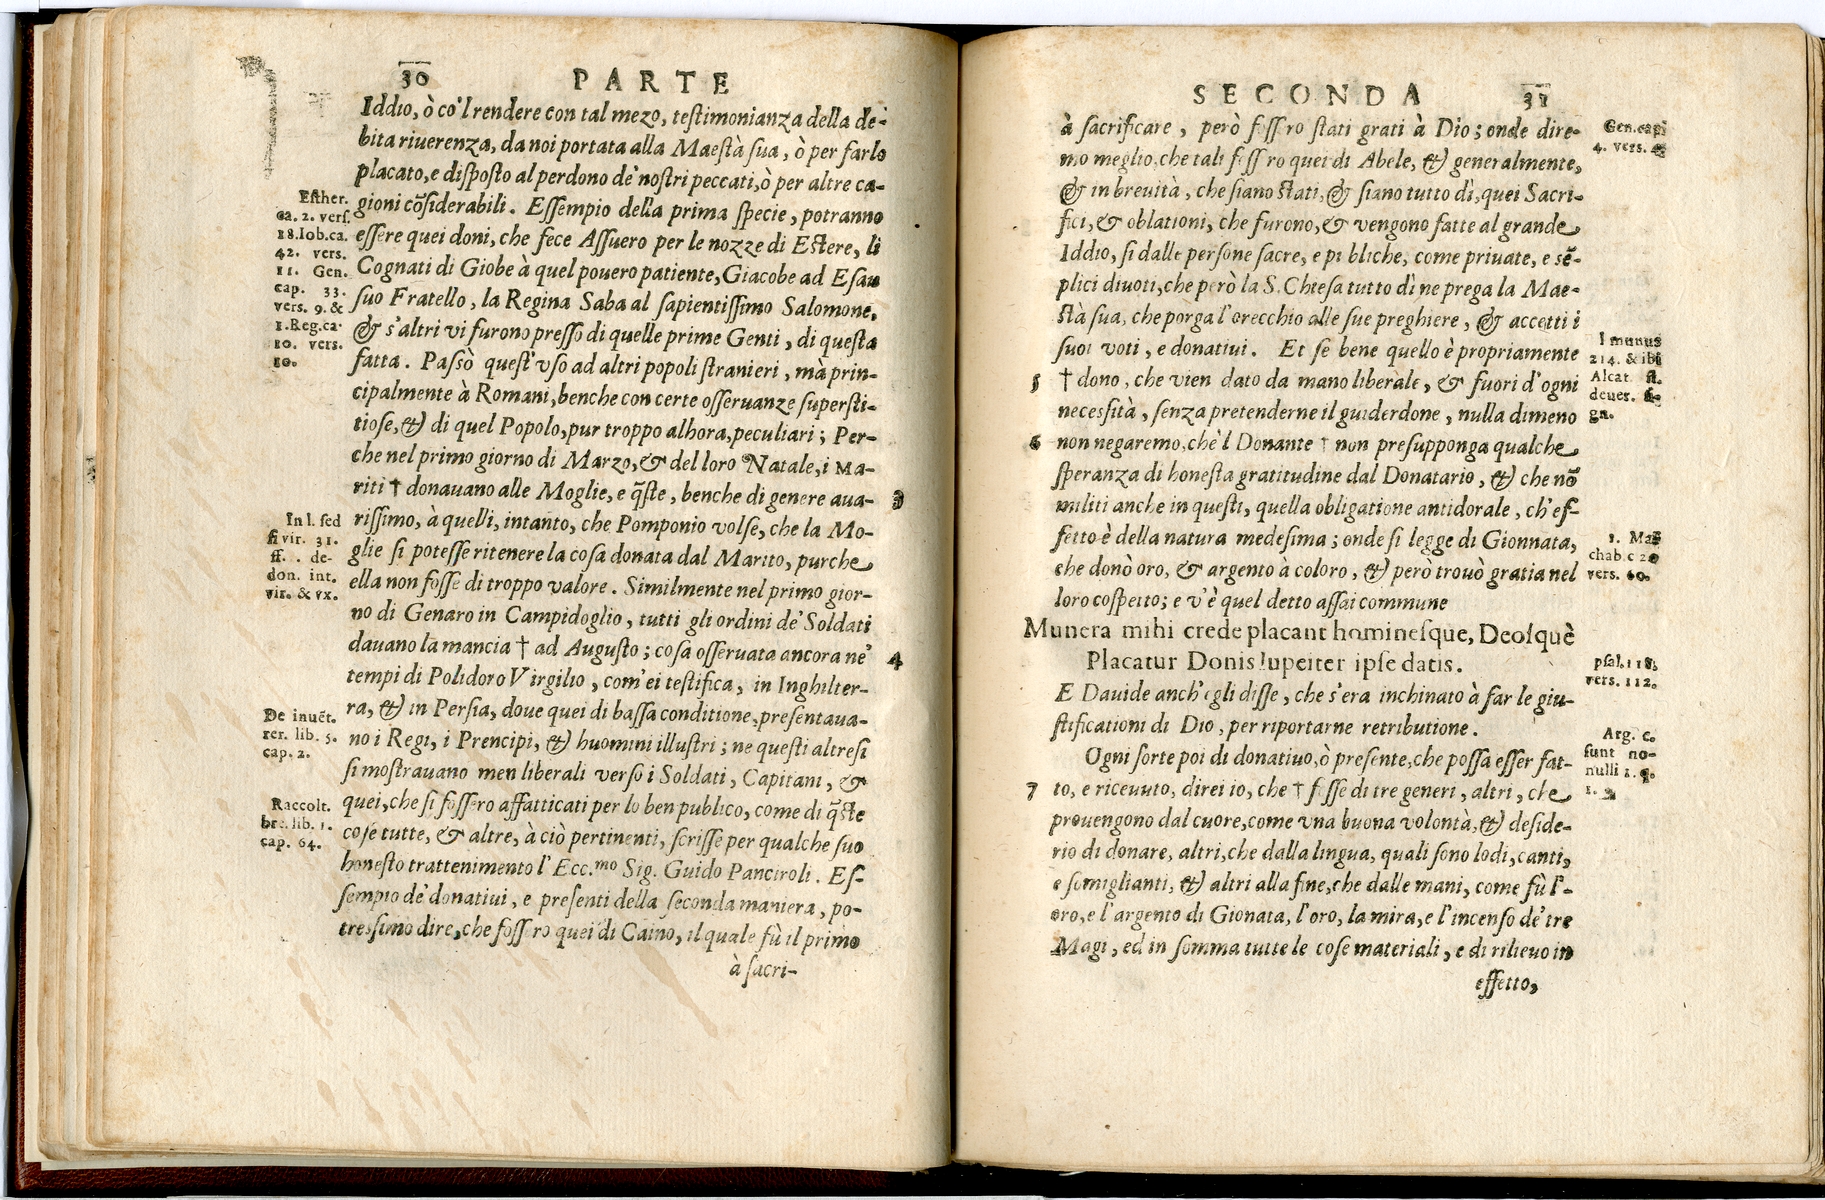 30 PARTE
Iddio, ò co'l rendere con tal mezo, testimonianza della de-
bita riuerenza, da noi portata alla Maestà sua, ò per farlo
placato, e disposto al perdono de' nostri peccati, ò per altre ca-
gioni cõsiderabili. Essempio della prima specie, potranno
essere quei doni, che fece Assuero per le nozze di Estere, li
Cognati di Giobe à quel pouero patiente, Giacobe ad Esau
suo Fratello, la Regina Saba al sapientissimo Salomone,
& s'altri vi furono presso di quelle prime Genti, di questa
fatta. Passò quest'vso ad altri popoli stranieri, mà prin-
cipalmente à Romani, benche con certe osseruanze supersti-
tiose, & di quel Popolo, pur troppo alhora, peculiari; Per-
che nel primo giorno di Marzo, & del loro Natale, i Ma-
riti † donauano alle Moglie, e q̃ste, benche di genere aua-
rissimo, à quelli, intanto, che Pomponio volse, che la Mo-
glie si potesse ritenere la cosa donata dal Marito, purche
ella non fosse di troppo valore. Similmente nel primo gior-
no di Genaro in Campidoglio, tutti gli ordini de' Soldati
dauano la mancia † ad Augusto; cosa osseruata ancora ne'
tempi di Polidoro Virgilio, com'ei testifica, in Inghilter-
ra, & in Persia, doue quei di bassa conditione, presentaua-
no i Regi, i Prencipi, & huomini illustri; ne questi altresi
si mostrauano men liberali verso i Soldati, Capitani, &
quei, che si fossero affatticati per lo ben publico, come di q̃ste
cose tutte, & altre, à ciò pertinenti, scrisse per qualche suo
honesto trattenimento l'Ecc.mo Sig. Guido Panciroli. Es-
sempio de' donatiui, e presenti della seconda maniera, po-
tressimo dire, che fossero quei di Caino, il quale fù il primo
à sacri-
Esther.
ca. 2. vers.
18. Iob. ca.
42. vers.
11. Gen.
cap. 33.
vers. 9. &
1. Reg. ca.
10. vers.
10.
3
In l. sed
si vir. 31.
ff. de-
don. int.
vir. & vx.
4
De inuẽt.
rer. lib. 5.
cap. 2.
Raccolt.
bre. lib. 1.
cap. 64.
SECONDA 31
à sacrificare, però fossero stati grati à Dio; onde dire-
mo meglio, che tali fossero quei di Abele, & generalmente,
& in breuità, che siano stati, & siano tutto dì, quei Sacri-
fici, & oblationi, che furono, & vengono fatte al grande
Iddio, si dalle persone sacre, e publiche, come priuate, e sẽ-
plici diuoti, che però la S. Chiesa tutto dì ne prega la Mae-
stà sua, che porga l'orecchio alle sue preghiere, & accetti i
suoi voti, e donatiui. Et se bene quello è propriamente
† dono, che vien dato da mano liberale, & fuori d'ogni
necessità, senza pretenderne il guiderdone, nulla dimeno
non negaremo, che'l Donante † non presupponga qualche
speranza di honesta gratitudine dal Donatario, & che nõ
militi anche in questi, quella obligatione antidorale, ch'ef-
fetto è della natura medesima; onde si legge di Gionnata,
che donò oro, & argento à coloro, & però trouò gratia nel
loro cospetto; e v'è quel detto assai commune
Munera mihi crede placant hominesque, Deosquè
Placatur Donis Iupeiter ipse datis.
E Dauide anch'egli disse, che s'era inchinato à far le giu-
stificationi di Dio, per riportarne retributione.
Ogni sorte poi di donatiuo, ò presente, che possa esser fat-
to, e riceuuto, direi io, che † fosse di tre generi, altri, che
prouengono dal cuore, come vna buona volontà, & deside-
rio di donare, altri, che dalla lingua, quali sono lodi, canti,
e somiglianti, & altri alla fine, che dalle mani, come fù l'-
oro, e l'argento di Gionata, l'oro, la mira, e l'incenso de' tre
Magi, ed in somma tutte le cose materiali, e di rilieuo in
effetto,
Gen. capi
4. vers. 4.
5
l munus
214. & ibi
Alcat. ff.
deuer. si-
gn.
6
1. Mac
chab. c 20
vers. 60.
psal. 118.
vers. 112.
Arg. c.
sunt no-
nulli 1. q.
1.
7